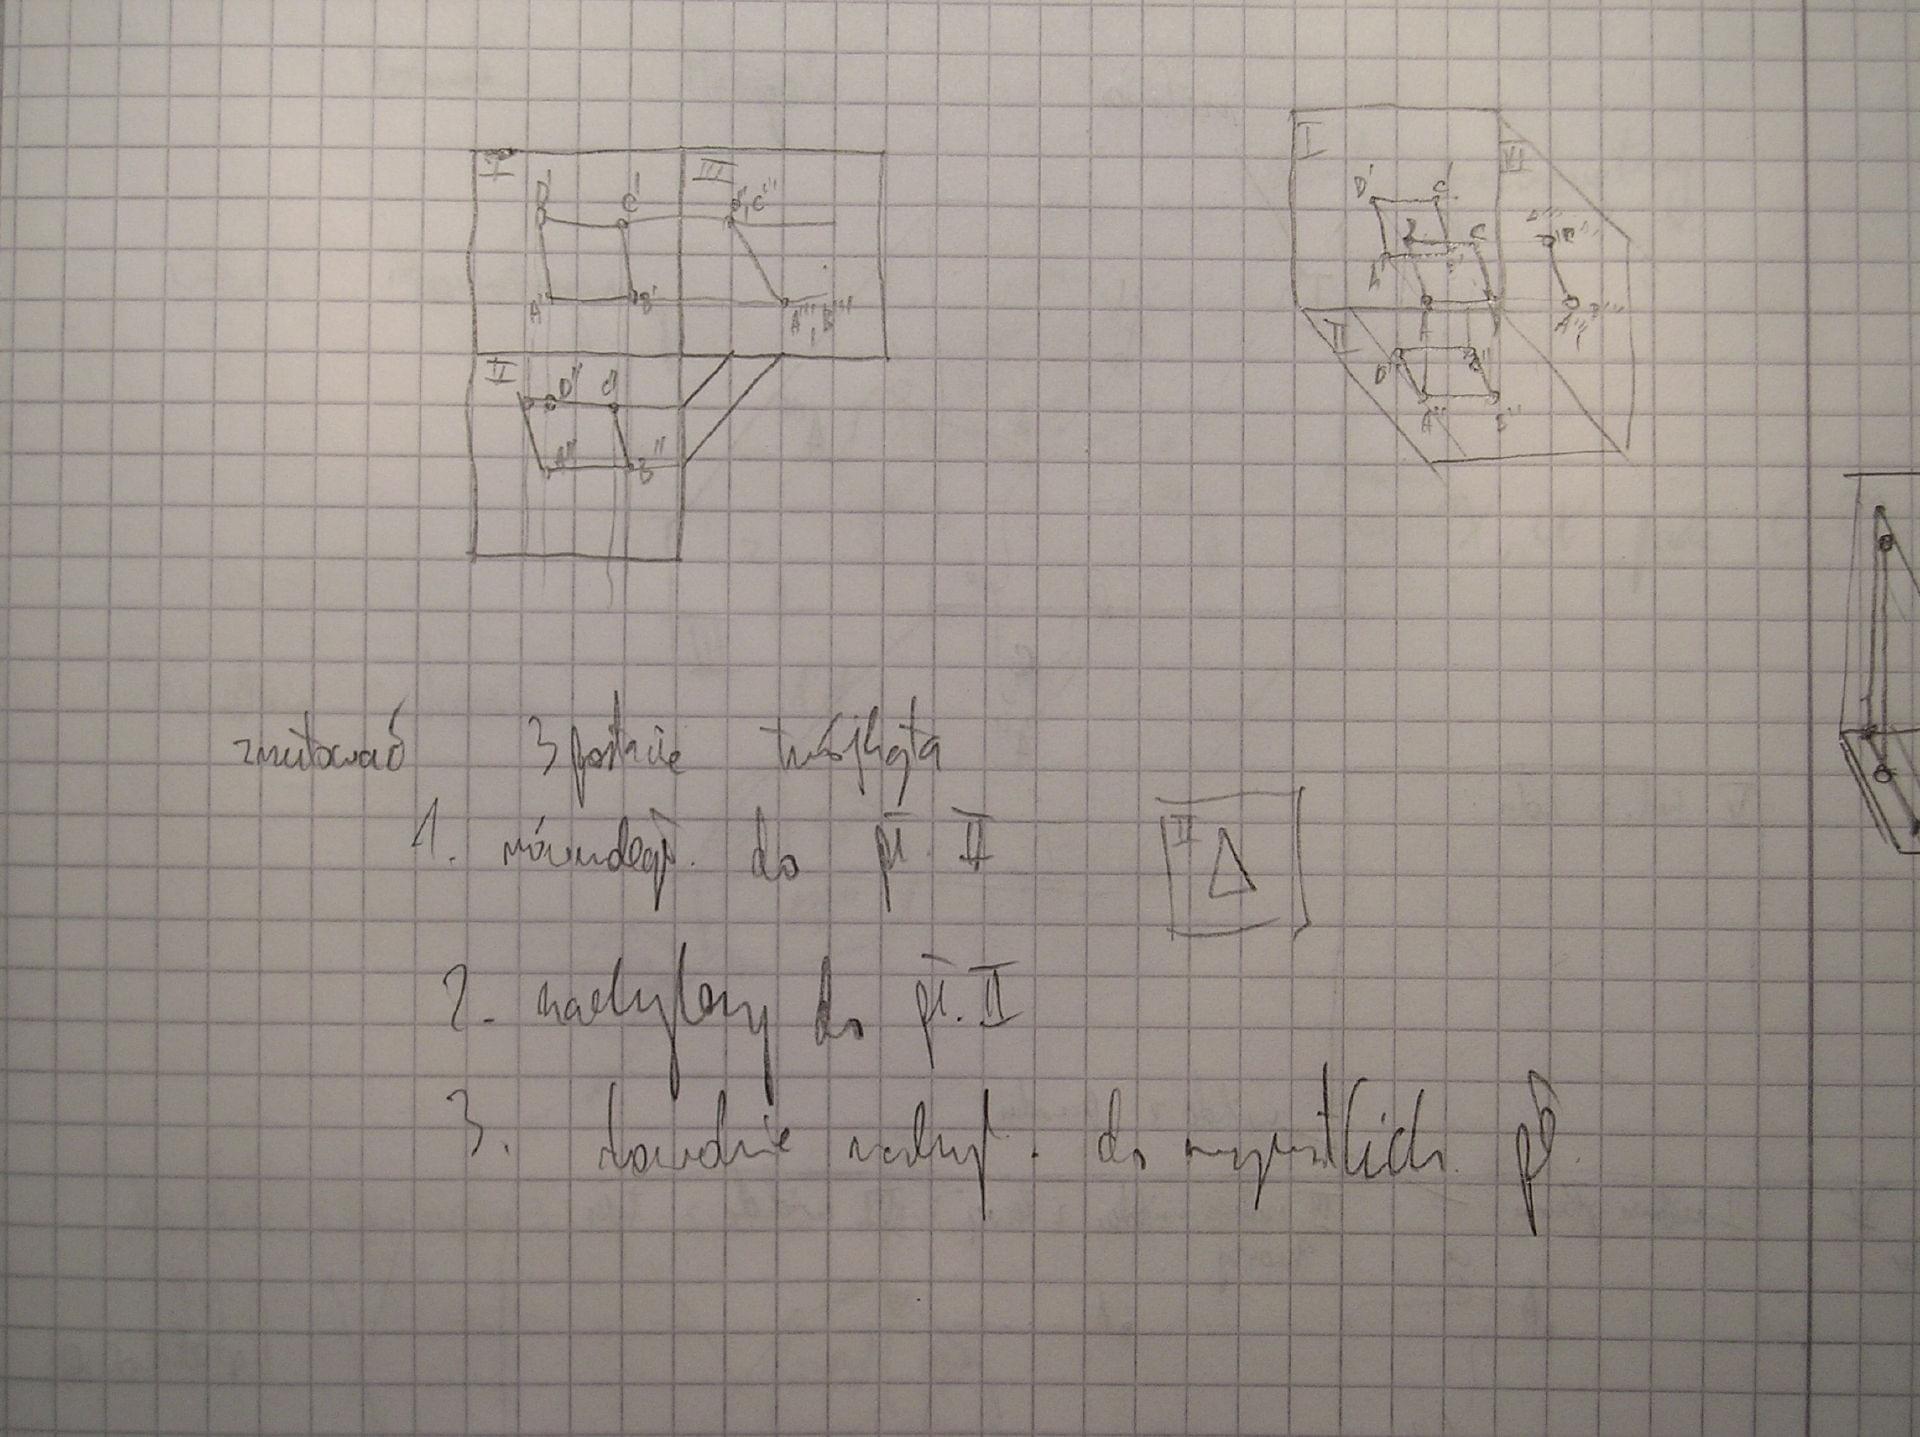 I III
D' C' D''', C'''
A' B' A''', B'''
II
D'' C''
A'' B''
I III
D' C'
C
A'
A
II
D''
A'' B''
zrzutować 3 postacie trójkąta
1. równoległ. do pł. II
II
2. nachylony do pł. II
3. dowolnie nachyl. do wszystkich pł.